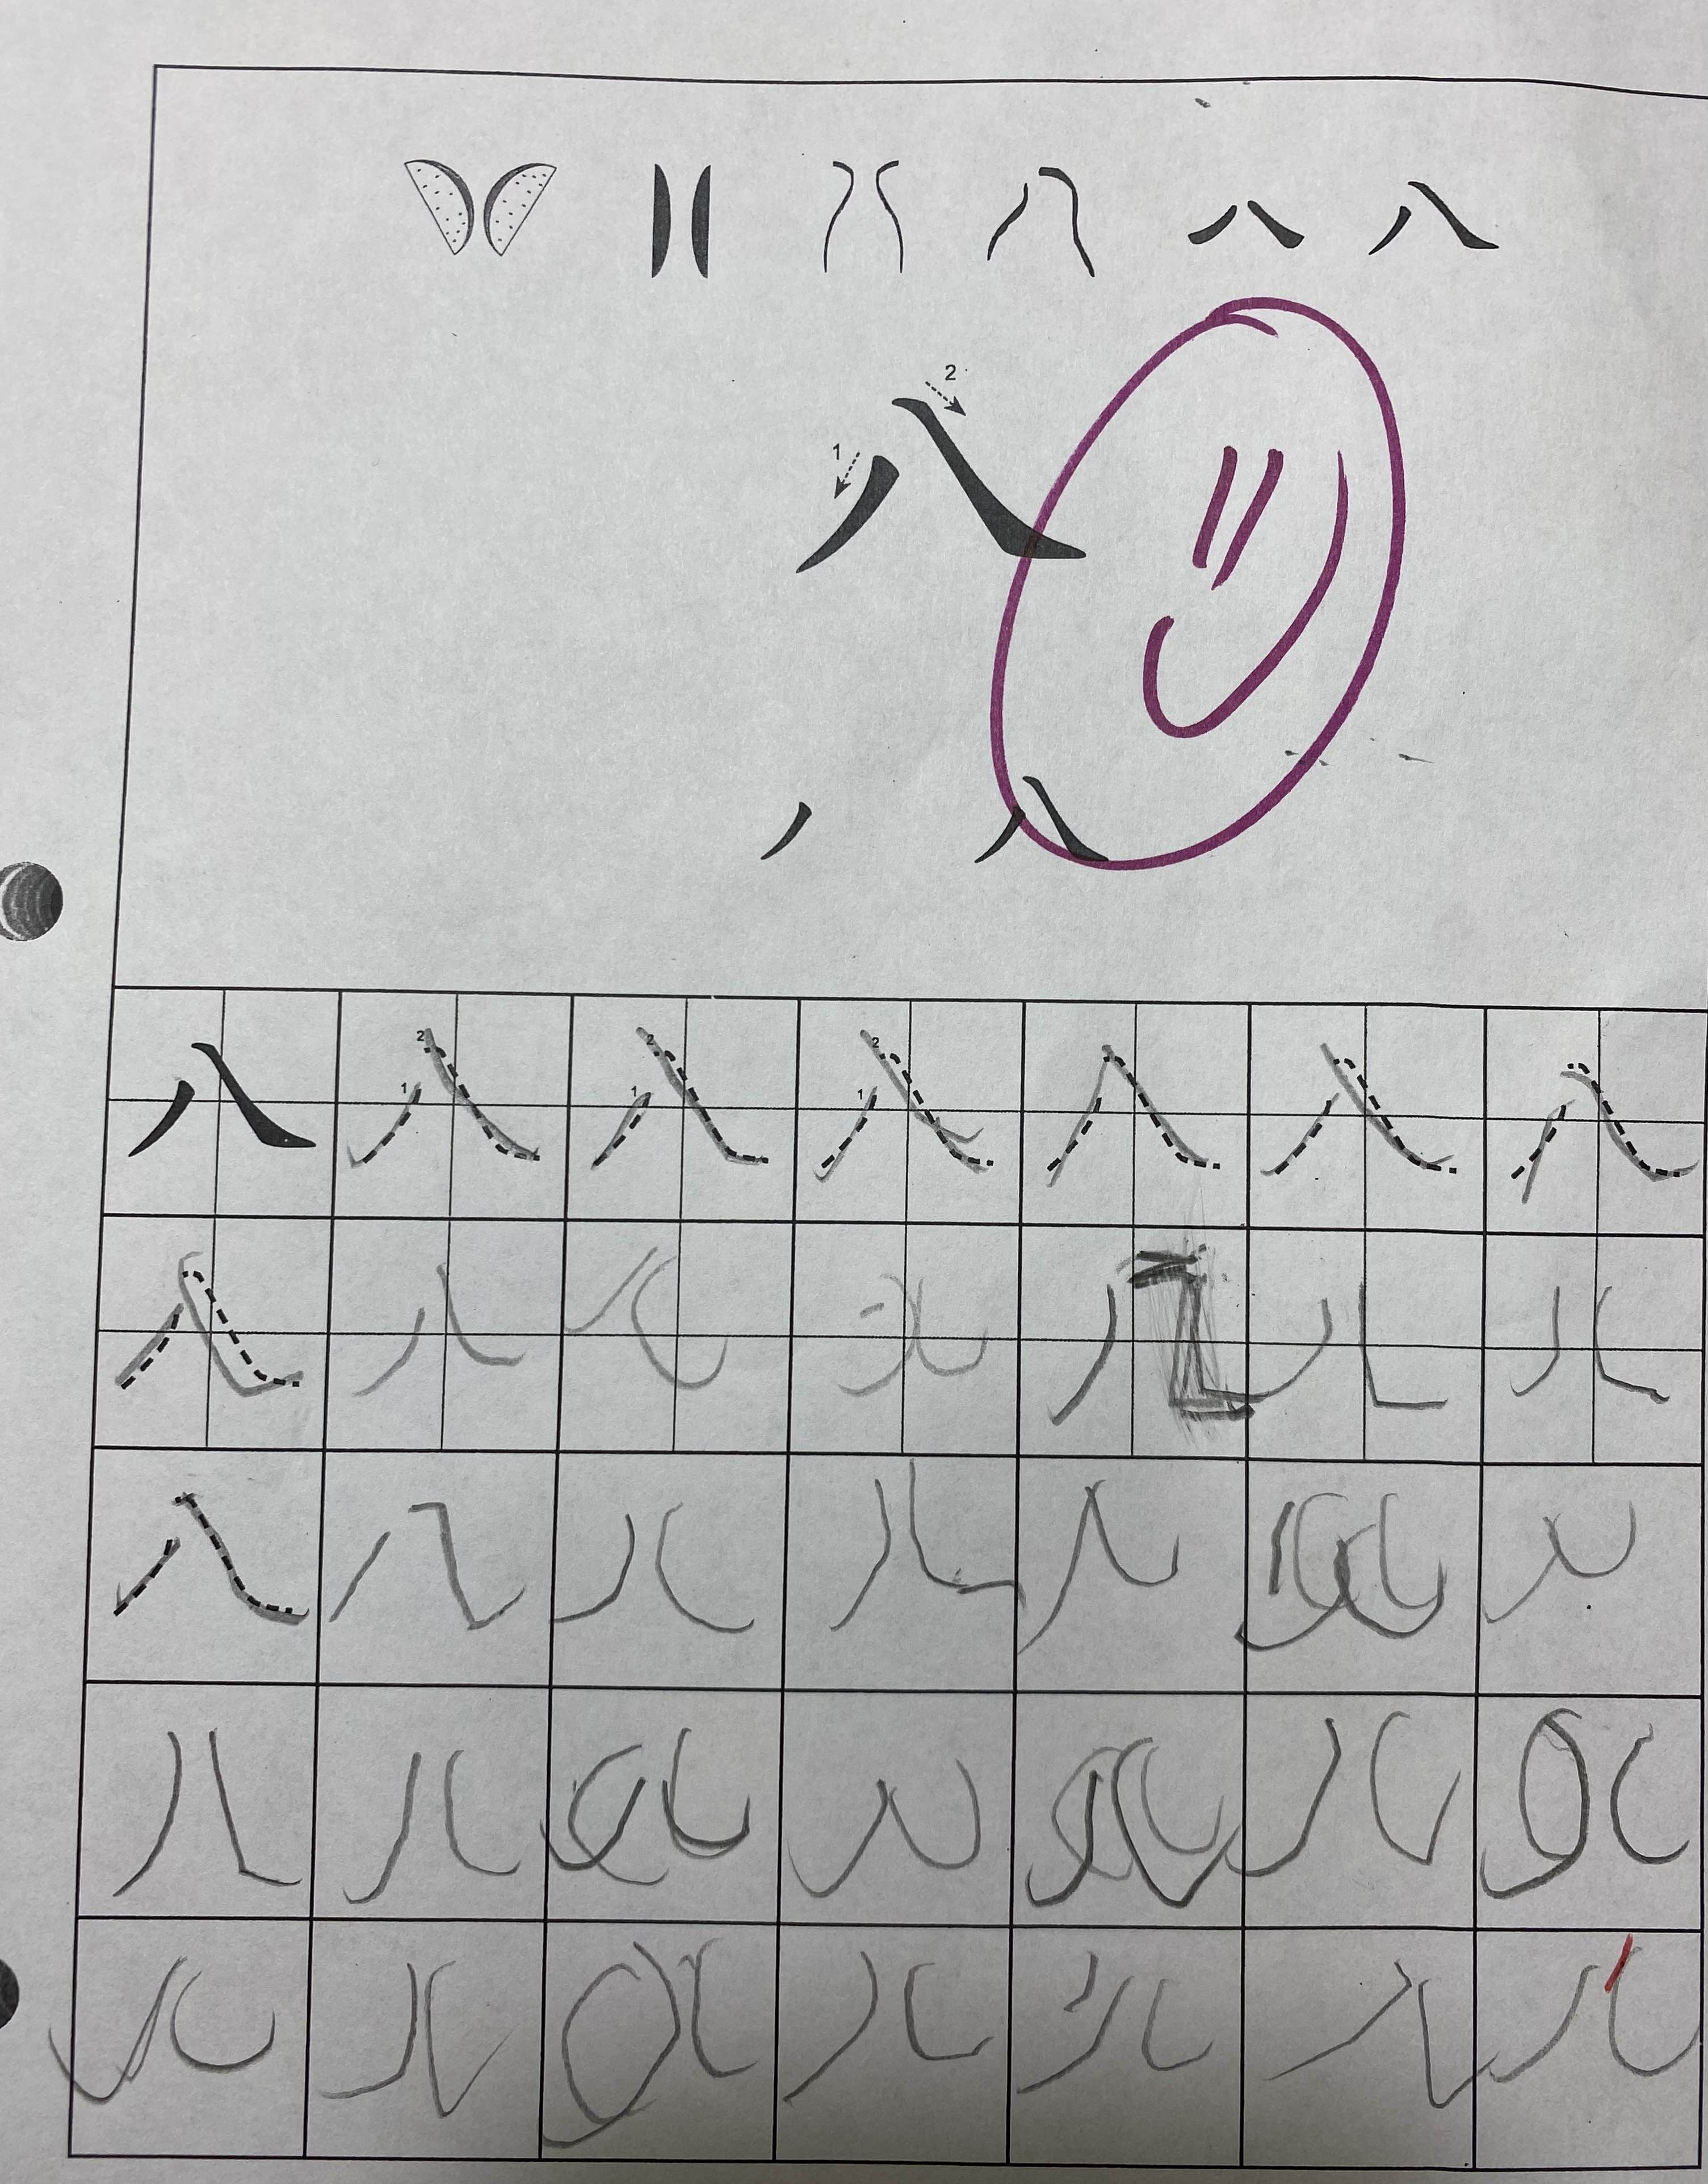 八 八
2
1
八
丿 八
八 2 1 八 2 1 八 2 1 八 八 八 八
八 八 八 八 八 八 八
八 八 八 八 八 八 八
八 八 八 八 八 八 八
八 八 八 八 八 八 八